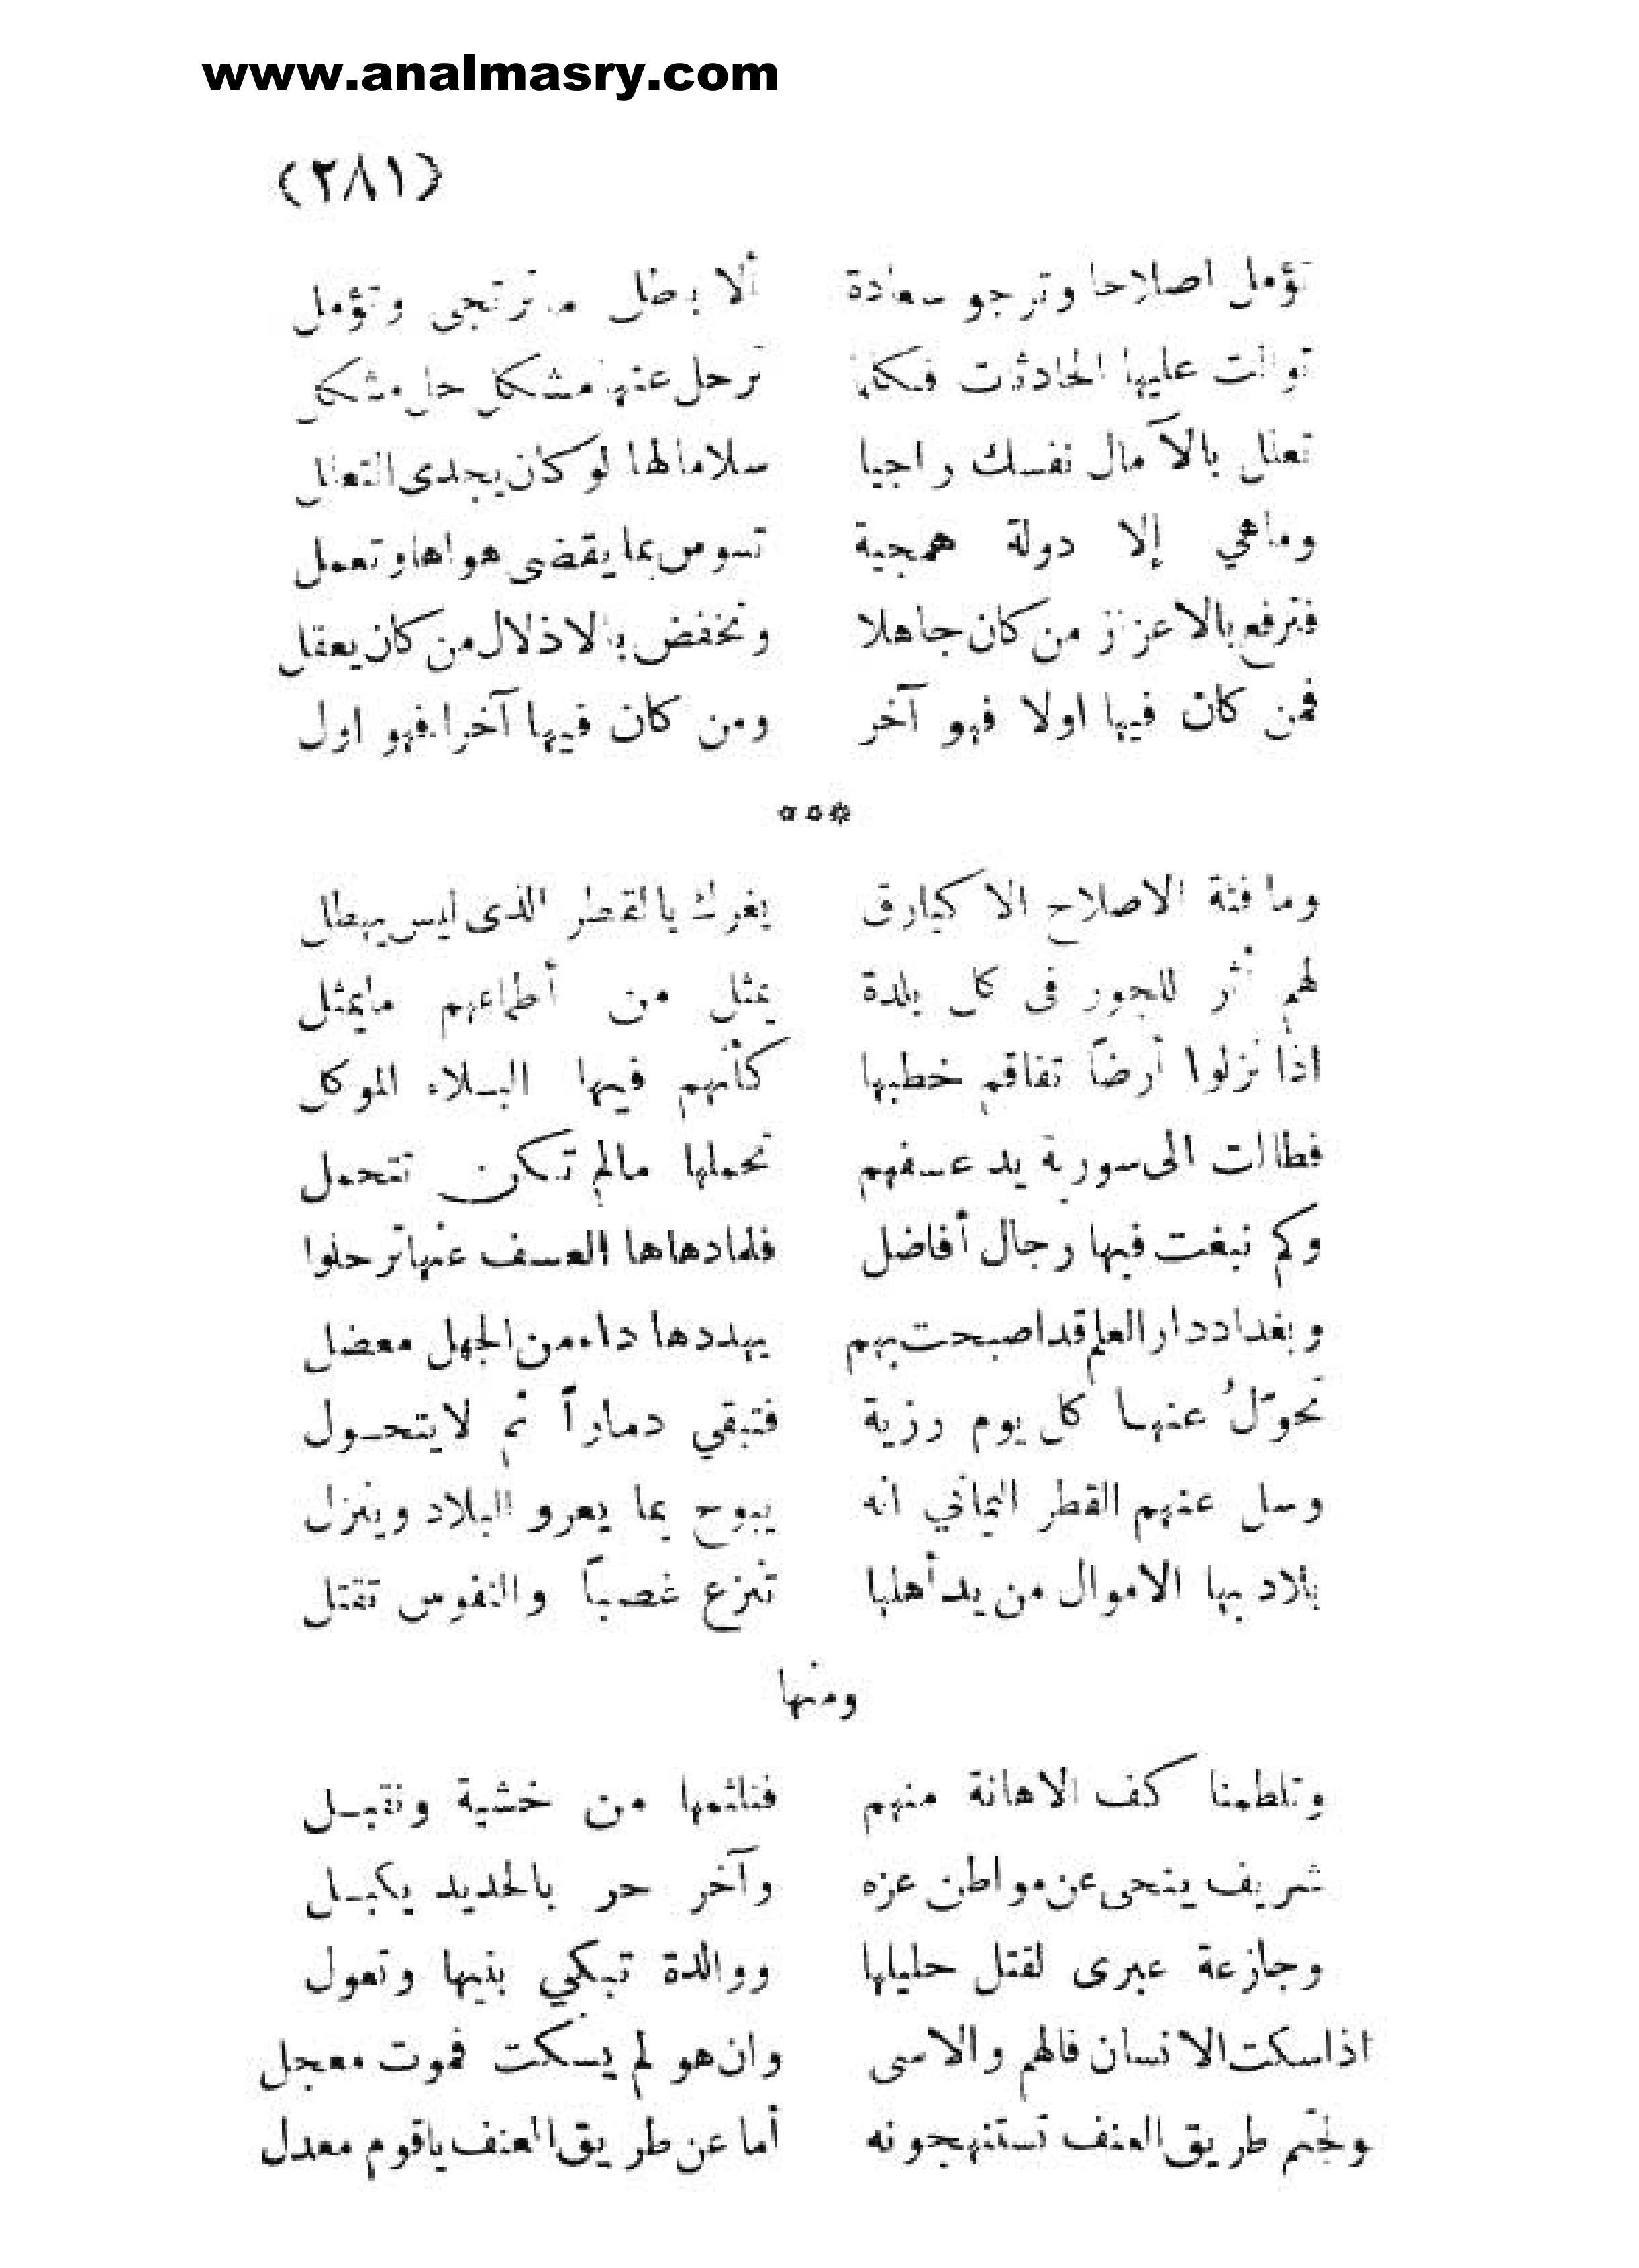 www.analmasry.com
(٢٨١)
تؤمل اصلاحا وترجو سعادة ألا بطل ما ترتجى وتؤمل
توالت عليها الحادثات فكلما ترحل عنها مشكل حل مشكل
تعلل بالآمال نفسك راجيا سلاما لها لو كان يجدى التعلل
وما هي إلا دولة همجية تسوس بما يقضى هواها وتعمل
فترفع بالاعزاز من كان جاهلا وتخفض بالاذلال من كان يعقل
فمن كان فيها اولا فهو آخر ومن كان فيها آخرا فهو اول
***
وما فئة الاصلاح الا كبارق يغرك بالقطر الذى ليس يهطل
لهم أثر للجور فى كل بلدة يمثل من أطماعهم ما يمثل
اذا نزلوا أرضاً تفاقم خطبها كأنهم فيها البلاء الموكل
فطالت الى سورية يد عسفهم تحملها مالم تكن تتحمل
وكم نبغت فيها رجال أفاضل فلما دهاها العسف عنها ترحلوا
وبغداد دار العلم قد اصبحت بهم يهددها داء من الجهل معضل
تحوّلُ عنها كل يوم رزية فتبقي دماراً ثم لا يتحول
وسل عنهم القطر اليماني انه يبوح بما يعرو البلاد وينزل
بلاد بها الاموال من يد أهلها تنزع غصباً والنفوس تقتل
ومنها
وتلطمنا كف الاهانة منهم فنلثمها من خشية ونقبل
شريف ينحى عن مواطن عزه وآخر حر بالحديد يكبل
وجازعة عبرى لقتل حليلها ووالدة تبكي بنيها وتعول
اذا سكت الانسان فالهم والاسى وان هو لم يسكت فموت معجل
ولجتم طريق العنف تستنهجونه أما عن طريق العنف ياقوم معدل